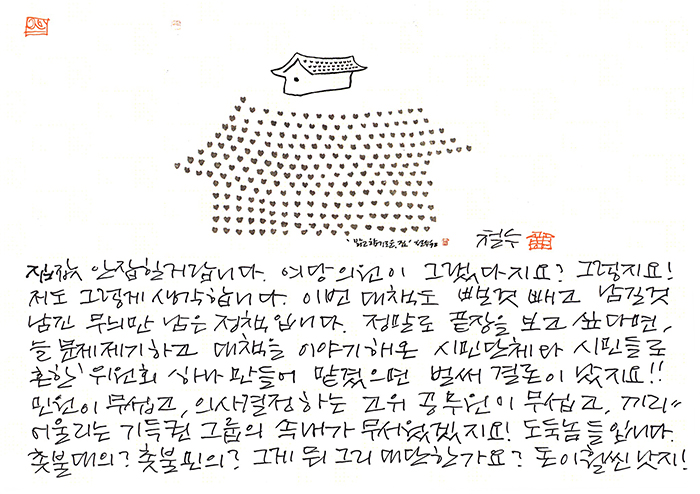 '밝고 향기로운 집' 철수
철수
집값 안 잡힐거랍니다. 여당의원이 그랬다지요? 그렇지요!
저도 그렇게 생각합니다. 이번 대책도 뺄것 빼고 남길것
남긴 무늬만 남은 정책입니다. 정말로 끝장을 보고 싶다면,
늘 문제제기하고 대책을 이야기해온 시민단체와 시민들로
혼합 위원회 하나 만들어 맡겼으면 벌써 결론이 났지요!!
민원이 무섭고, 의사결정하는 고위 공무원이 무섭고, 끼리"
어울리는 기득권 그룹의 속내가 무서웠겠지요! 도둑놈들입니다.
촛불대의? 촛불민의? 그게 뭐 그리 대단한가요? 돈이 훨씬 낫지!